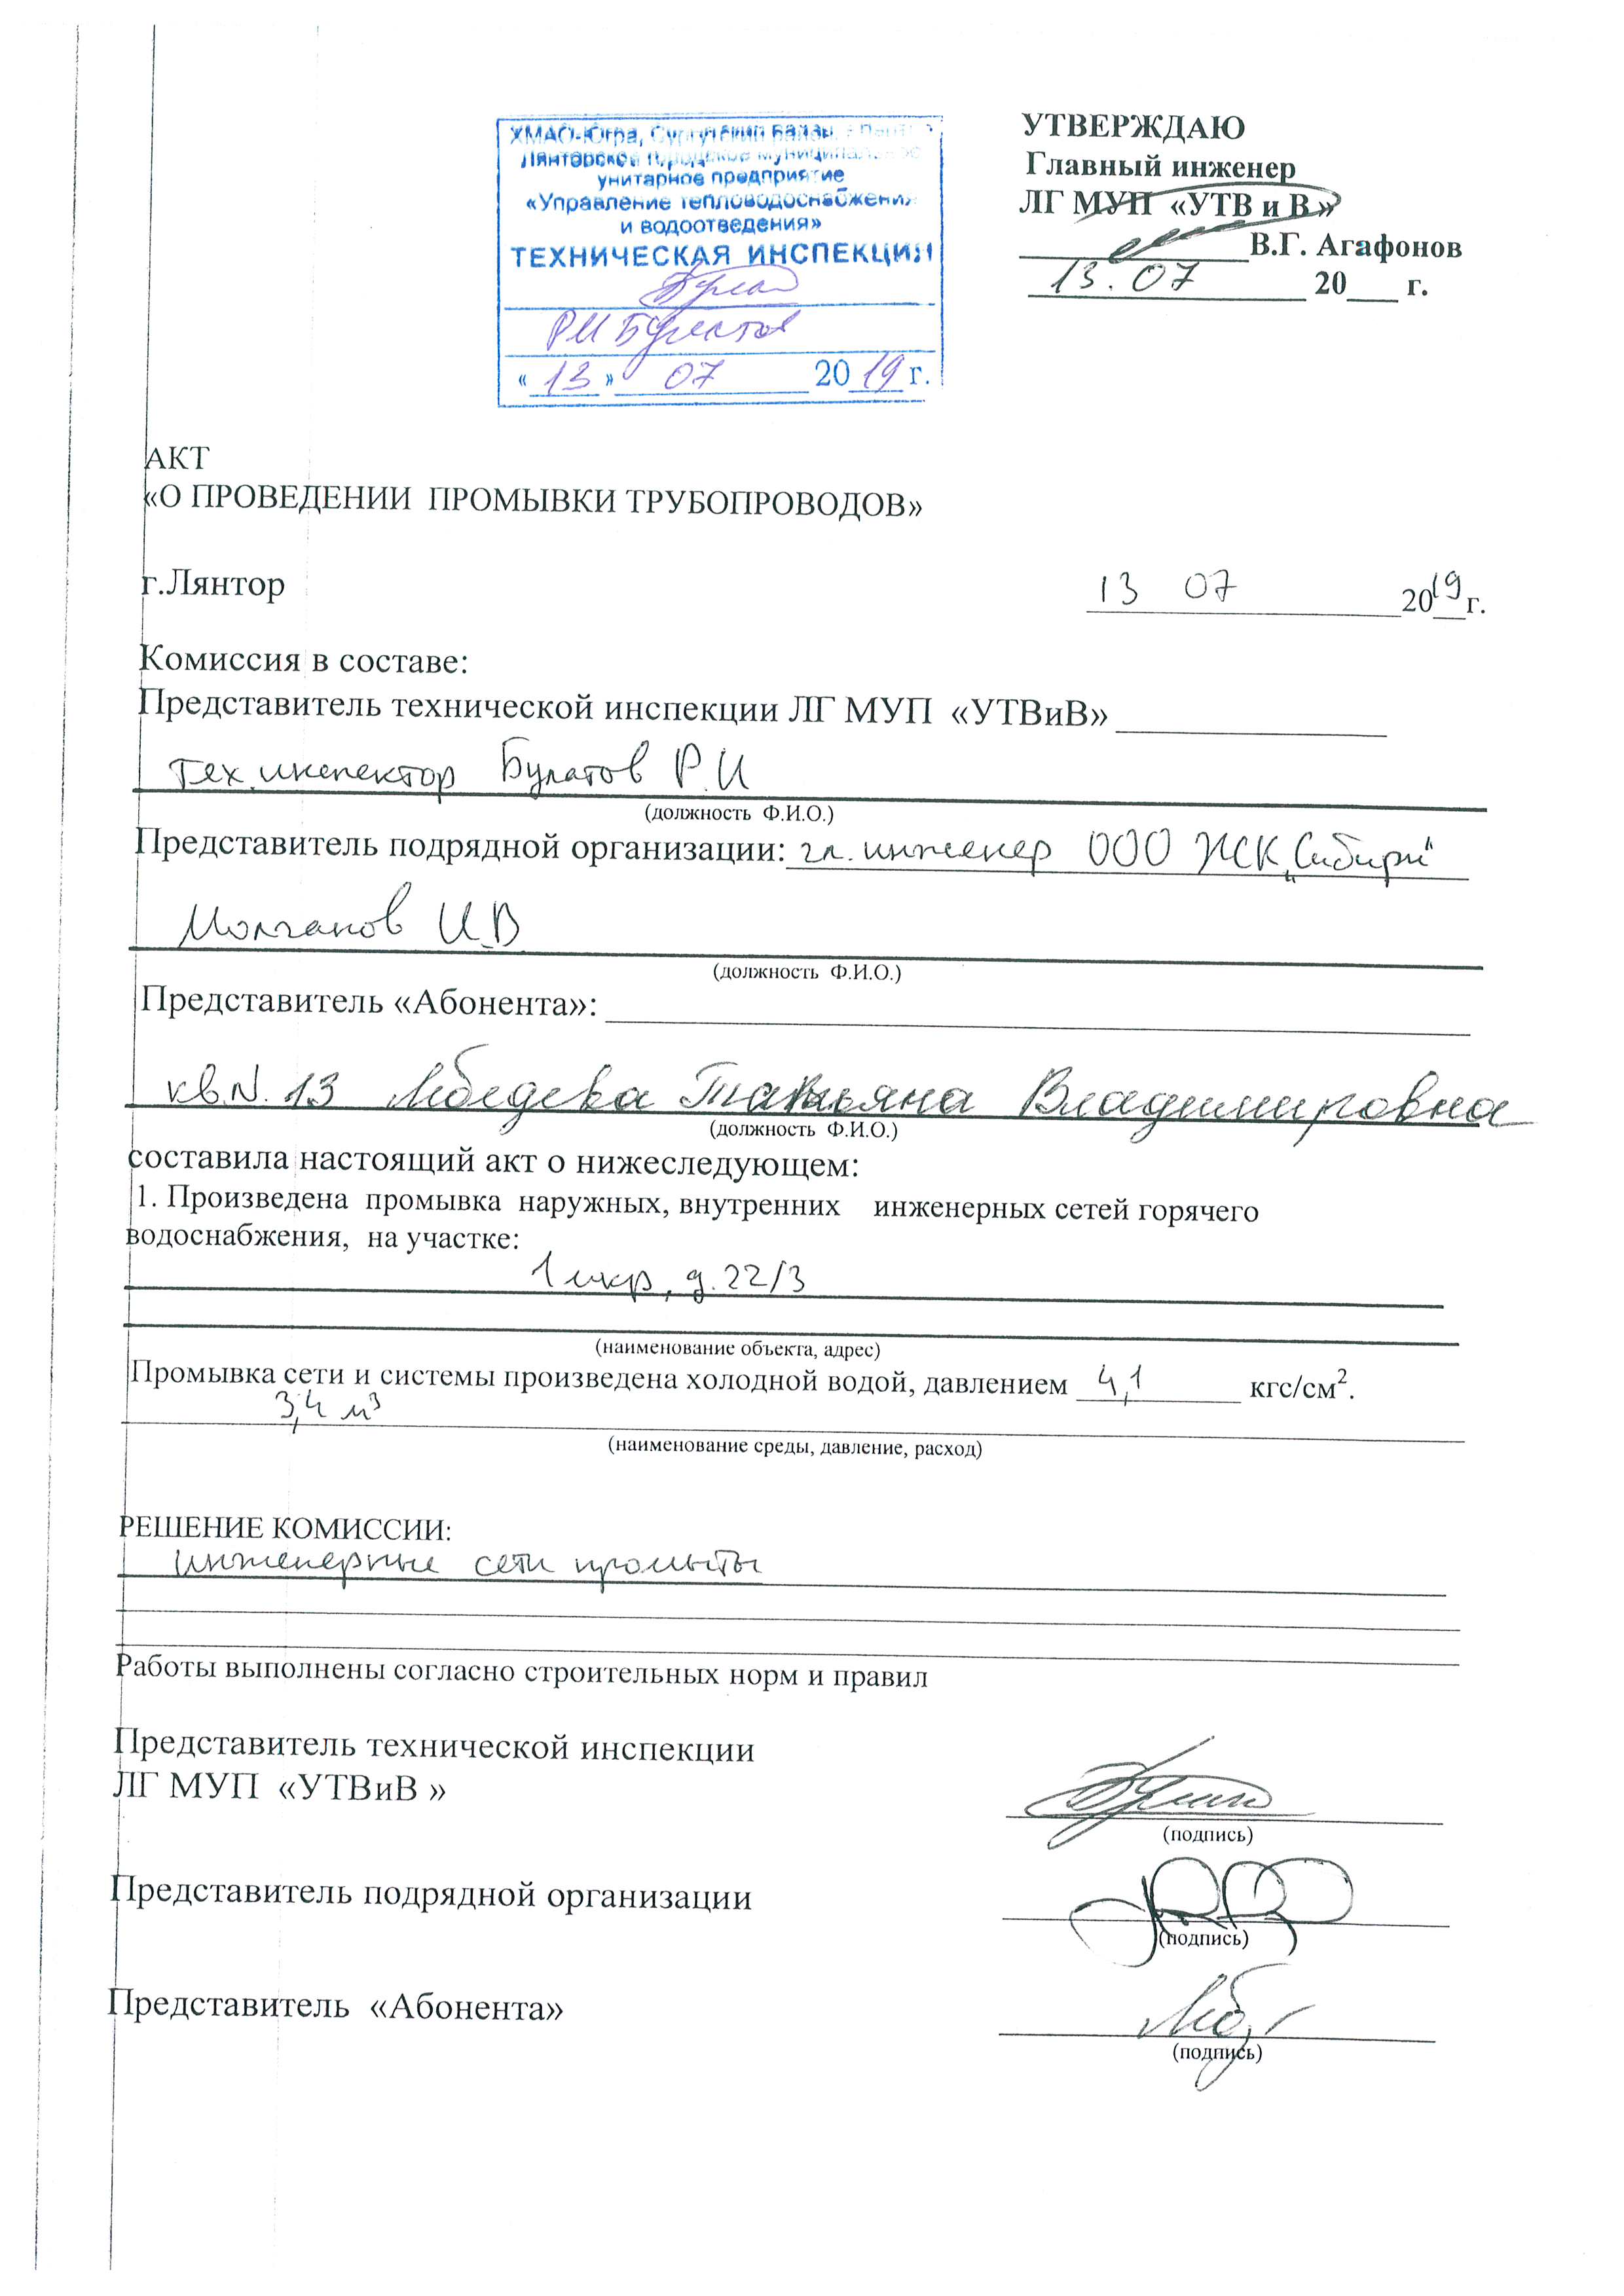 ХМАО-Югра, Сургутский район, г.
Лянторское городское муниципальное
унитарное предприятие
«Управление тепловодоснабжения
и водоотведения»
ТЕХНИЧЕСКАЯ ИНСПЕКЦИЯ
Р И Булатов
« 13 » 07 20 19 г.
УТВЕРЖДАЮ
Главный инженер
ЛГ МУП «УТВ и В»
В.Г. Агафонов
13.07 20___ г.
АКТ
«О ПРОВЕДЕНИИ ПРОМЫВКИ ТРУБОПРОВОДОВ»
г.Лянтор 13 07 2019г.
Комиссия в составе:
Представитель технической инспекции ЛГ МУП «УТВиВ»
тех.инспектор Булатов Р.И
(должность Ф.И.О.)
Представитель подрядной организации: гл. инженер ООО ЖСК „Сибири"
Молчанов И.В
(должность Ф.И.О.)
Представитель «Абонента»:
кв.N. 13 Лебедева Татьяна Владимировна
(должность Ф.И.О.)
составила настоящий акт о нижеследующем:
1. Произведена промывка наружных, внутренних инженерных сетей горячего
водоснабжения, на участке:
1 мкр, д.22/3
(наименование объекта, адрес)
Промывка сети и системы произведена холодной водой, давлением 4,1 кгс/см².
3,4 м³
(наименование среды, давление, расход)
РЕШЕНИЕ КОМИССИИ:
инженерные сети промыты
Работы выполнены согласно строительных норм и правил
Представитель технической инспекции
ЛГ МУП «УТВиВ »
(подпись)
Представитель подрядной организации
(подпись)
Представитель «Абонента»
(подпись)